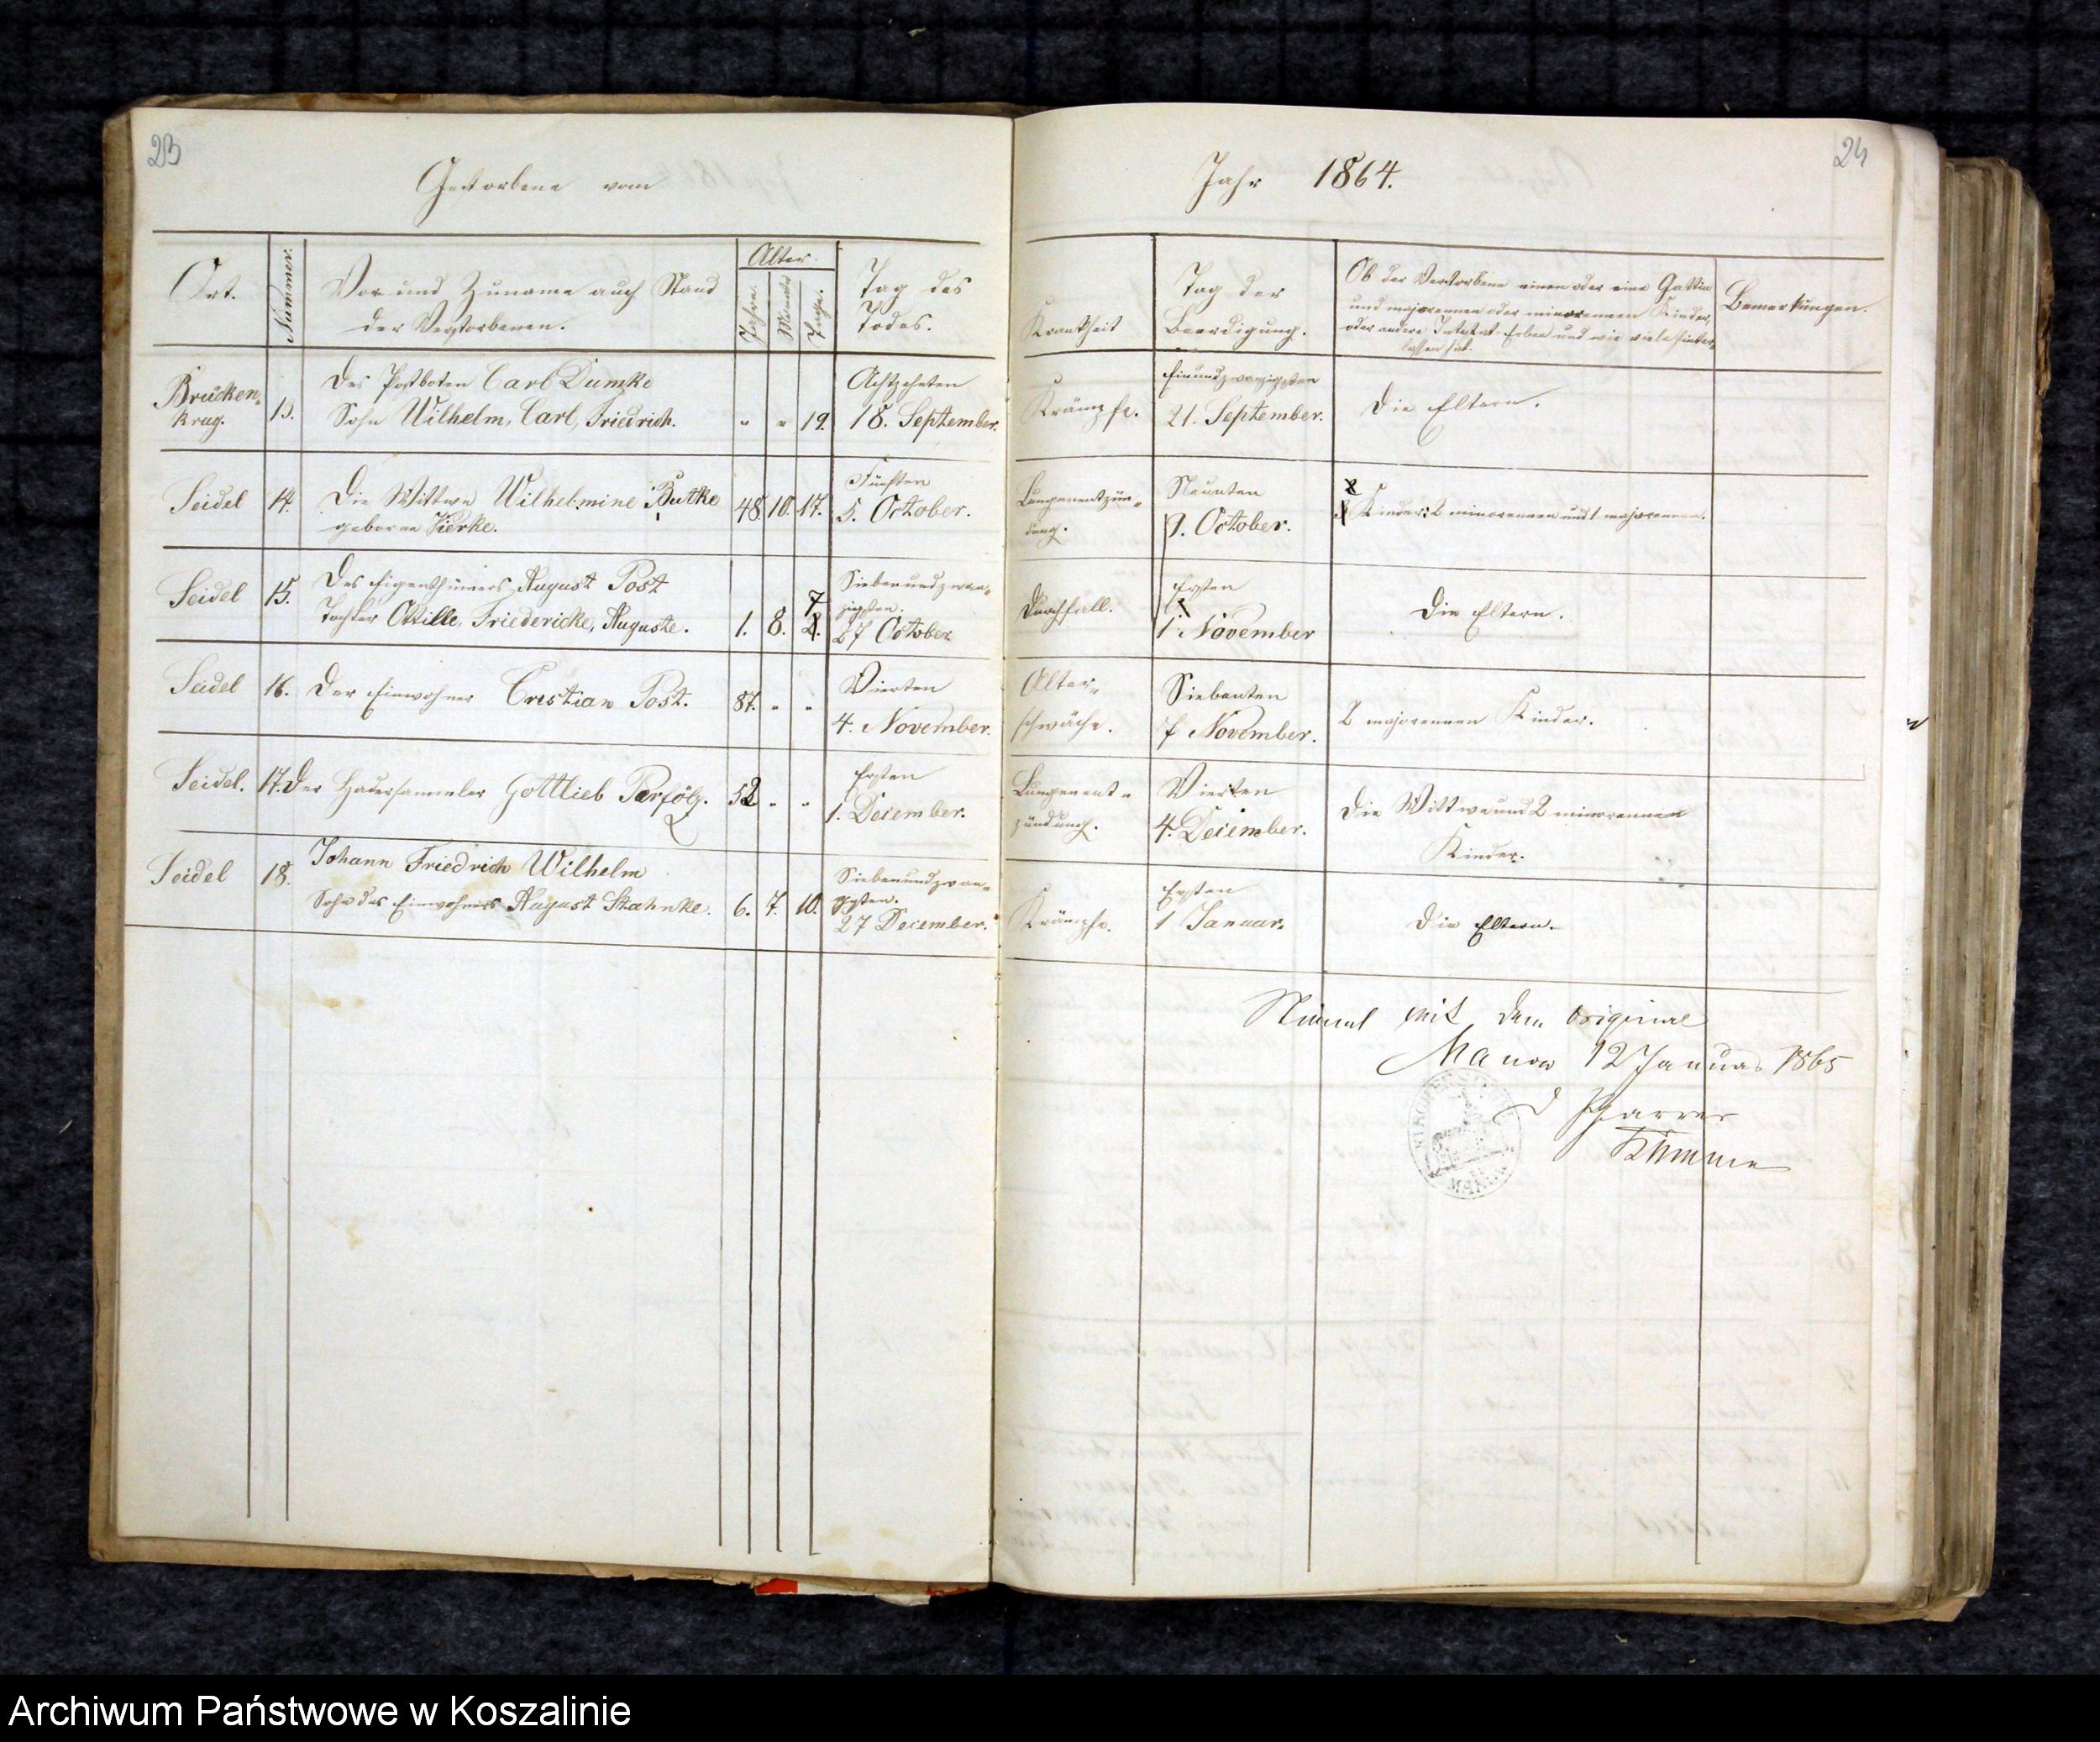 23
Gestorbene vom
Ort.
Nummer.
Vor und Zuname auch Stand
der Verstorbenen.
Alter.
Jahre.
Monate
Tage.
Tag des
Todes.
Brücken-
krug.
13.
Des Postboten Carl Dumke
Sohn Wilhelm, Carl, Friedrich.
" " 19.
Achtzehnten
18. September.
Seidel
14.
Die Wittwe Wilhelmine Butke
geborne Pierke.
48. 10. 17.
Fünften
5. October.
Seidel
15.
Des Eigenthümers August Post
Tochter Ottilie, Friedericke, Auguste.
1. 8. 7
Siebenundzwan-
zigsten.
27 October
Seidel
16.
Der Einwohner Cristian Post.
87. " "
Vierten
4. November.
Seidel.
17.
Der Hadersammler Gottlieb
52 " "
Ersten
1. December.
Seidel
18.
Johann Friedrich Wilhelm
Sohn des Einwohners August Stahnke.
6. 7. 10.
Siebenundzwan-
zigsten.
27 December.
24
Jahr 1864.
Krankheit
Tag der
Beerdigung.
Ob der Verstorbene einen oder eine Gattin
und majorennen oder minorennen Kinder,
oder andere Intestat Erben und wie viele hinter-
lassen hat.
Bemerkungen.
Krämpfe.
Einundzwanzigsten
21. September.
Die Eltern.
Lungenentzün-
dung.
Neunten
9. October.
Kinder: 2 minorennen und 1 majorennen.
Durchfall.
Ersten
1 November
Die Eltern.
Alter-
schwäche.
Siebenten
7 November.
2 majorennen Kinder.
Lungenent-
zündung.
Vierten
4. December.
Die Wittwe und 2 minorennen
Kinder.
Krämpfe.
Ersten
1 Januar.
Die Eltern.
Stimmt mit dem Original
Manow 12 Januar 1865
Pfarrer
Archiwum Państwowe w Koszalinie